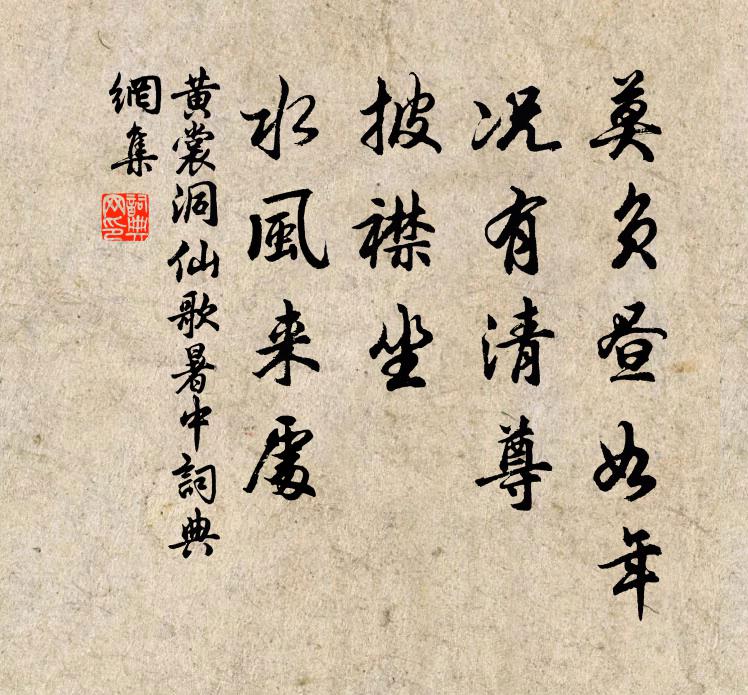 莫负昼如年
况有清尊
披襟坐
水風来處
黄裳洞仙歌暑中詞典
網集
詞典网印